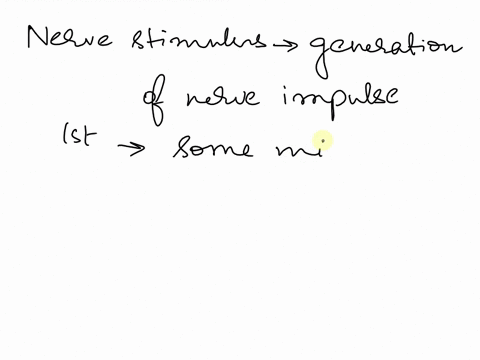 Nerve stimulus → generation
of nerve impulse
1st → some mi